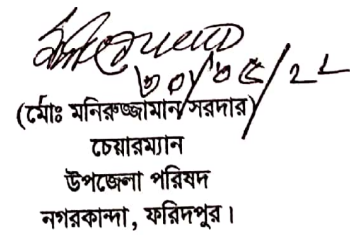 (মোঃ মনিরুজ্জামান সরদার)
চেয়ারম্যান
উপজেলা পরিষদ
নগরকান্দা, ফরিদপুর।